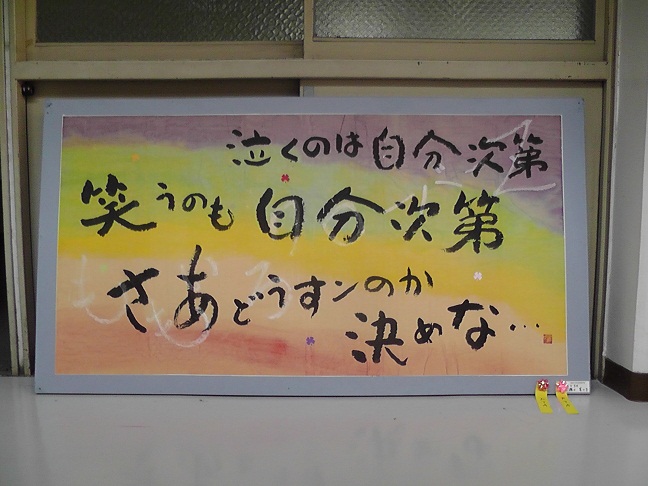 泣くのは自分次第
笑うのも自分次第
さあどうすンのか
決めな…